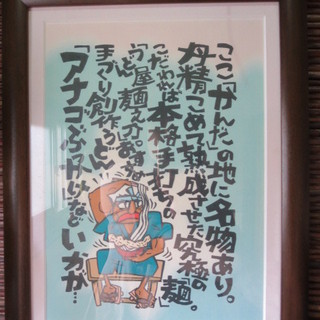 ここ「かんだ」の地に名物あり。
丹精こめて熟成させた究極の「麺」。
こだわりは本格手打ちの
うどん屋麺え門。
手づくり創作うどん
「アナゴぶっかけ」などいかが…